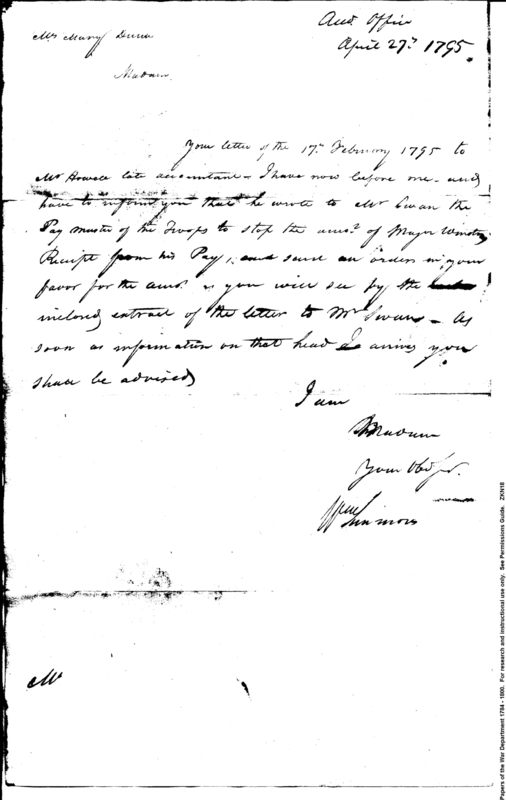 Acct. Office
April 27th 1795.
Mrs Mary Dunn
Madam
Your letter of the 17th February 1795 to
Mr Howell late accountant - I have now before me - and
have to inform you that he wrote to Mr Swan the
Pay Master of the Troops to stop the amot. of Major
Receipt from his Pay, and send an orders in your
favor for the amot. as you will see by the
inclosed extract of the letter to Mr Swan - As
soon as information on that head arrives you
shall be advised
I am
Madam
Your Obd.
Wm Simmons
Mr
Papers of the War Department 1784 - 1800. For research and instructional use only. See Permissions Guide. ZKN18